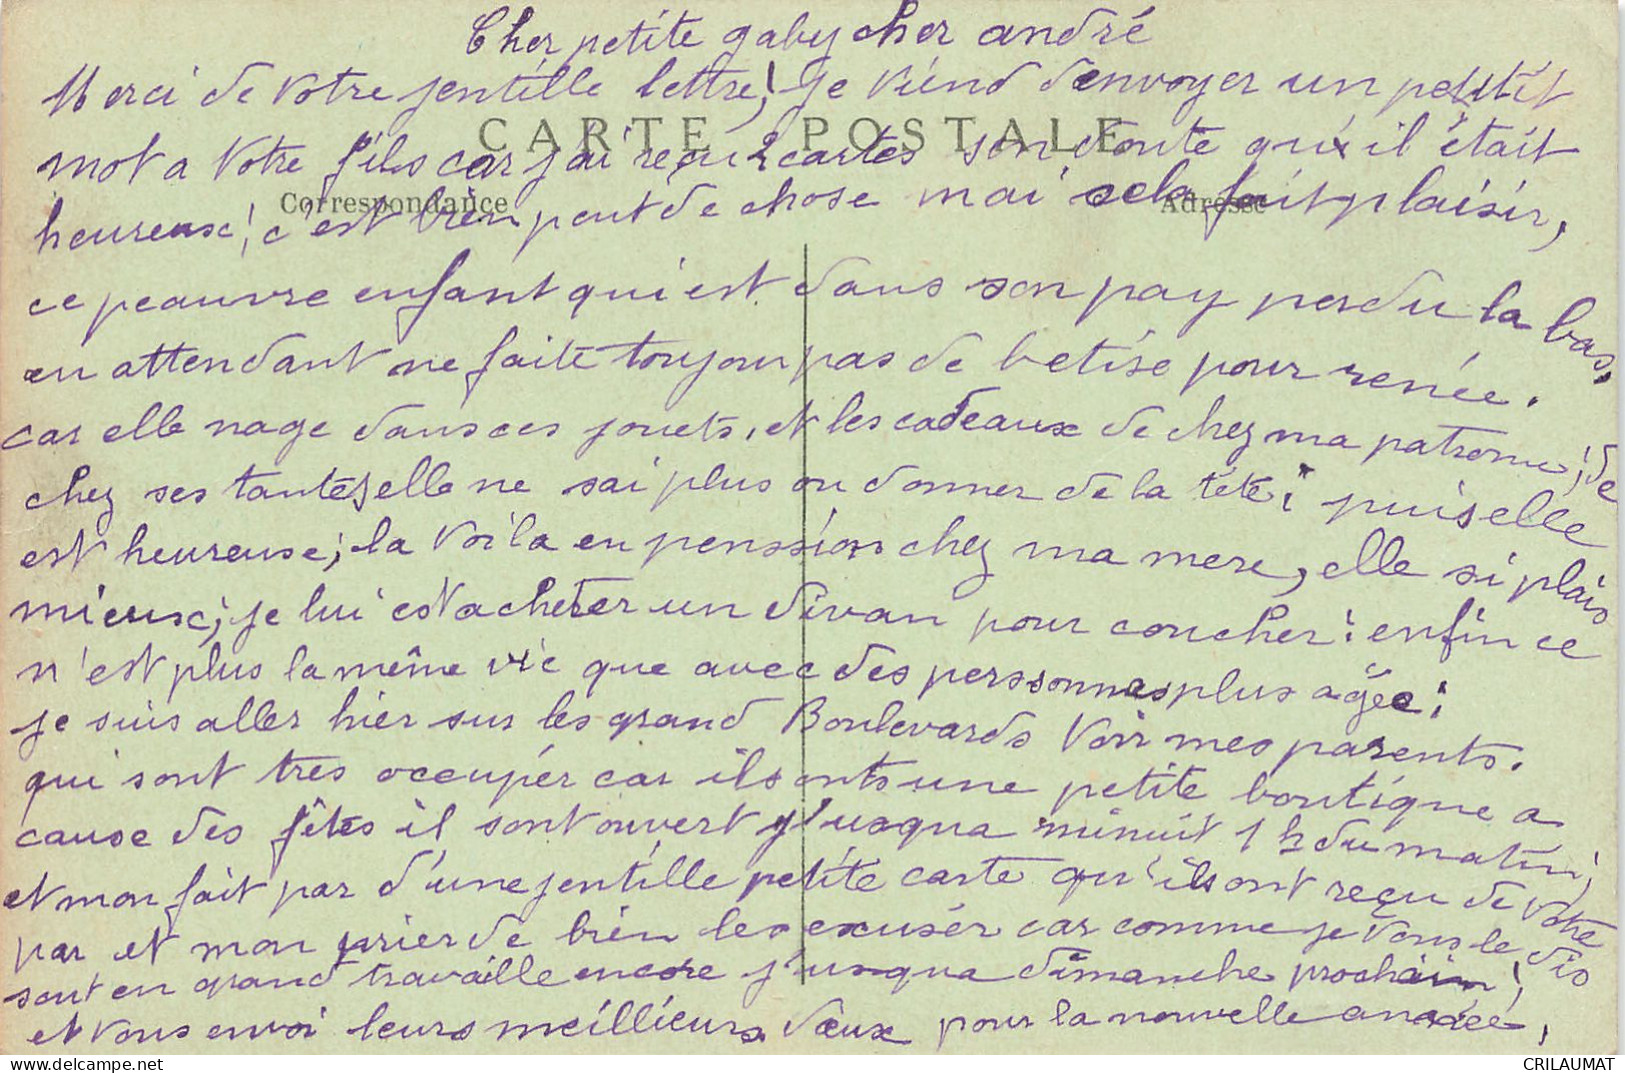 Cher petite gaby cher andré
Merci de Votre jentille lettre, je viend d'envoyer un petitit
CARTE POSTALE
mot a Votre fils car j'ai reçu 2 cartes son doute qu'il était
Correspondance Adresse
heureux; c'est bien peut de chose mai cela fait plaisir,
ce peauvre enfant qui est dans son pay perdu la bas,
en attendant ne faite toujour pas de betise pour renée.
car elle nage dans ces jouets, et les cadeaux de chez ma patronne; de
chez ses tantes, elle ne sai plus ou donner de la tète; puiselle
est heureuse; la Voila en penssion chez ma mere, elle si plais
mieux; je lui est acheter un divan pour coucher: enfin ce
n'est plus la même vie que avec des perssonnes plus agée;
je suis aller hier sur les grand Boulevards Voir mes parents.
qui sont tres occupér car ils onts une petite boutique a
cause des fêtes il sont ouvert j'usqua minuit 1h du matin;
et mon fait par d'une jentille petite carte qu'ils ont reçu de Votre
par et mon prier de bien les excusér car comme je Vous le dis
sont en grand travaille encore j'usqua dimanche prochain;
et Vous envoi leurs meillieurs Vœux pour la nouvelle année,
CRILAUMAT